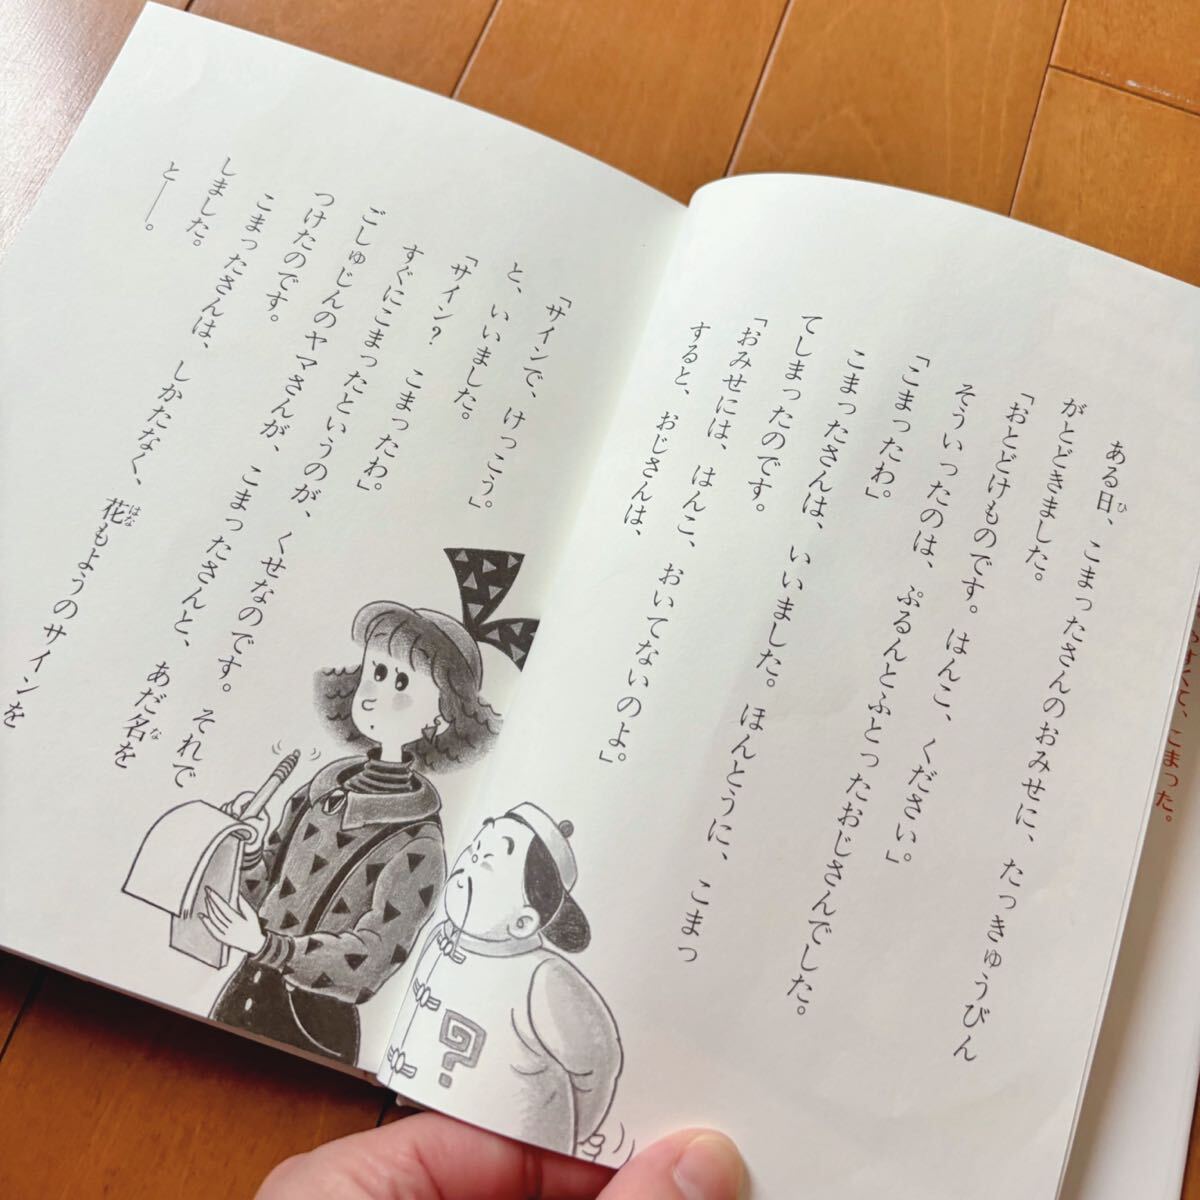 ある日、こまったさんのおみせに、たっきゅうびん
がとどきました。
「おとどけものです。はんこ、ください。」
そういったのは、ぷるんとふとったおじさんでした。
「こまったわ。」
こまったさんは、いいました。ほんとうに、こまっ
てしまったのです。
「おみせには、はんこ、おいてないのよ。」
すると、おじさんは、
「サインで、けっこう。」
と、いいました。
「サイン？　こまったわ。」
すぐにこまったというのが、くせなのです。それで
ごしゅじんのヤマさんが、こまったさんと、あだ名を
つけたのです。
こまったさんは、しかたなく、花もようのサインを
しました。
と――。
ひ
な
はな
て、こまった。